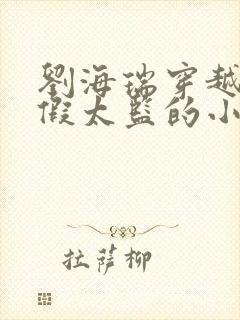 劉海瑞穿越
假太監的小
拉薩柳